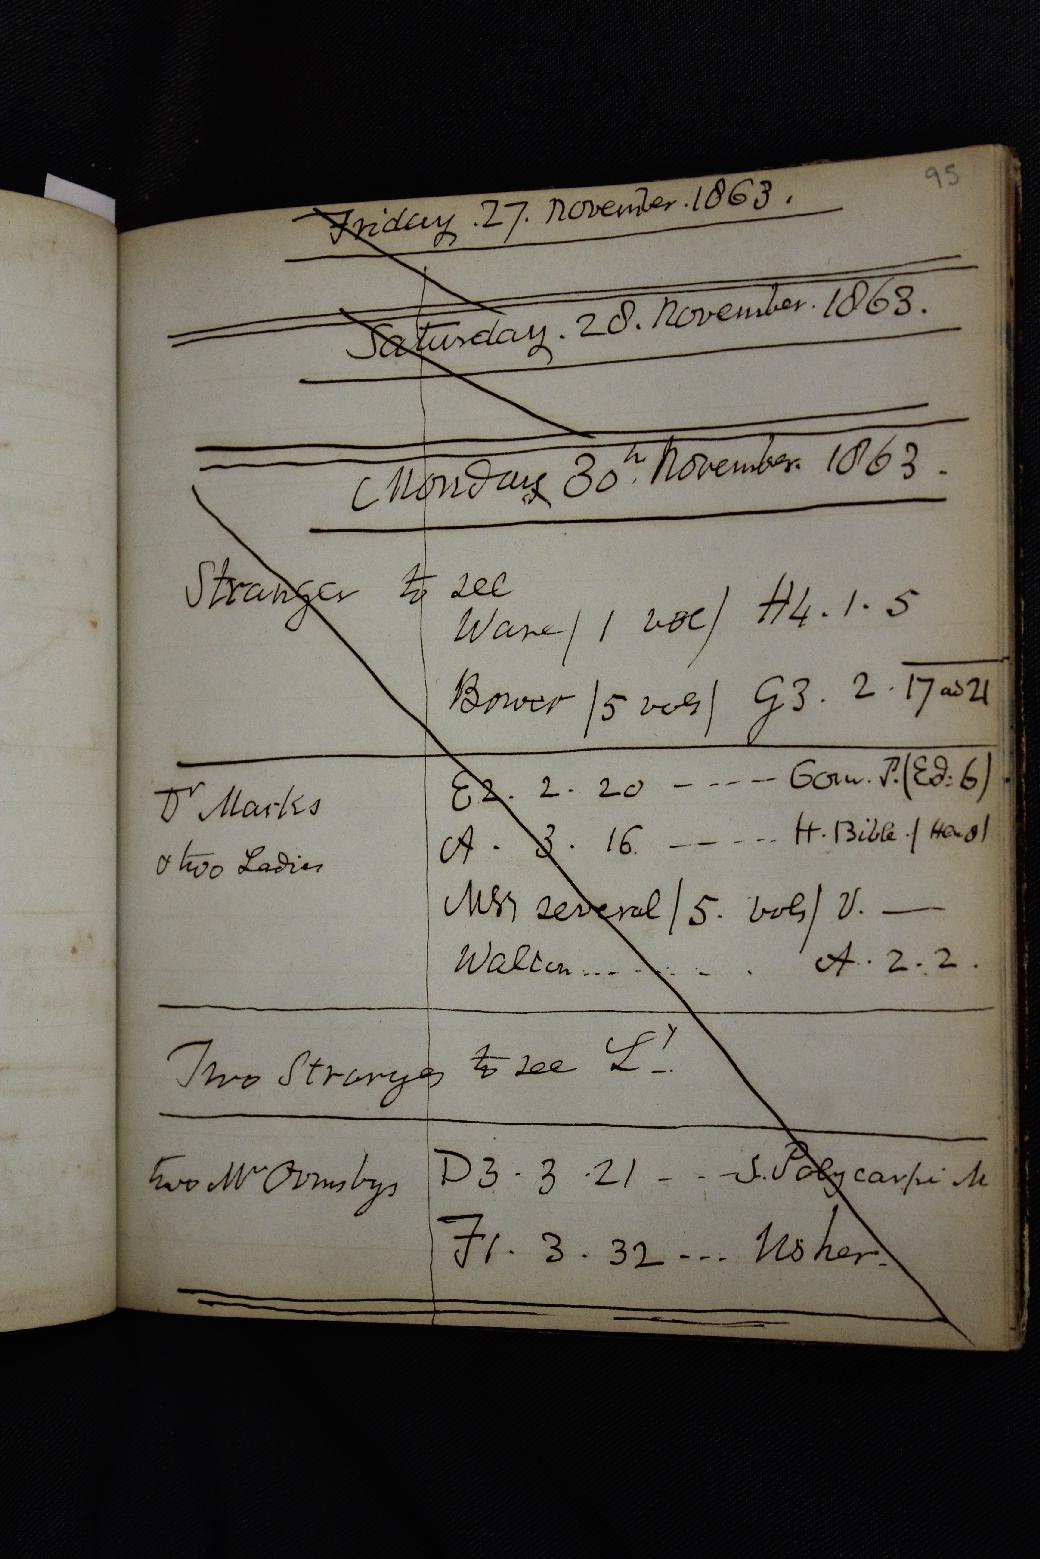 95
Friday . 27. November . 1863 .
Saturday . 28. November . 1863.
Monday 30th. November. 1863 .
Stranger to see
Ware / 1 vol / H4 . 1 . 5
Bower / 5 vols / G3 . 2 . 17 ad 21
Dr Marks E2 . 2 . 20 ---- Com. P. (Ed: 6)
A . 3 . 16 ----- H. Bible /
& two Ladies
MSS several / 5. vols / V. —
Walton ....... A . 2 . 2 .
Two Strangers to see Ly.
two Mr Ormsbys D3 . 3 . 21 - - - S. Polycarpi M
F1 . 3 . 32 --- Usher.